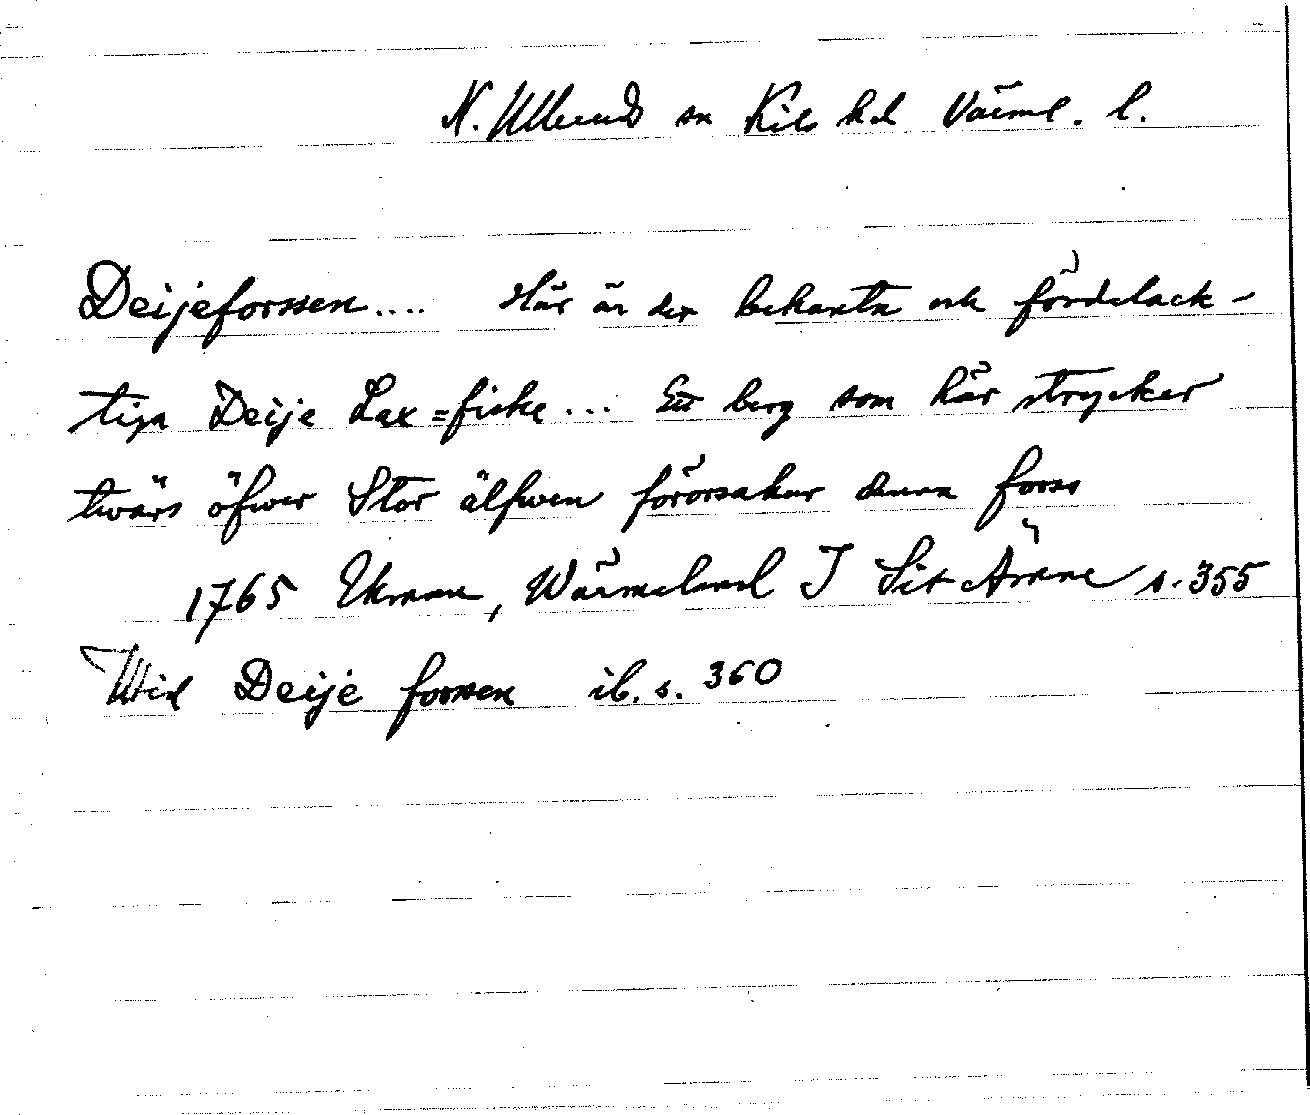 N. Ullerud sn Kils hd Värml. l.
Deijeforssen.... Här är den bekanta och fördelack-
tiga Deije Lax=fiske... Ett berg som här strycker
twärs öfwer Stor älfwen förorsakar denna forss
1765 Ekman, Wärmeland I Sit Ämne s. 355
Wid Deije forssen ib. s. 360